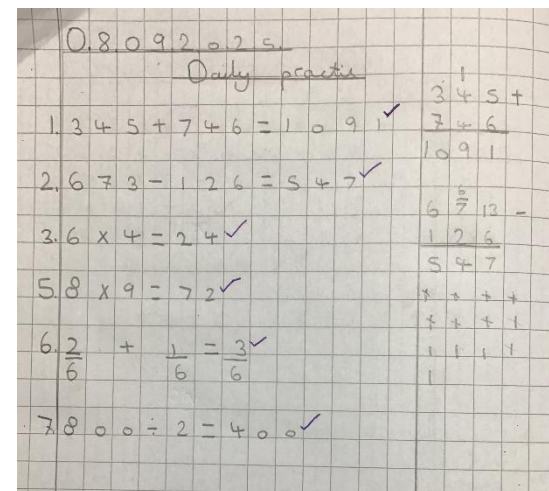 0.8.092025.
Daily practis
1. 345+746=1091
2. 673-126=547
3. 6×4=24
5. 8×9=72
6. 2/6 + 1/6 = 3/6
7. 800÷2=400
1
345+
746
1091
6
6 7 13 -
126
547
+ + + +
+ + + +
1 1 1 +
1